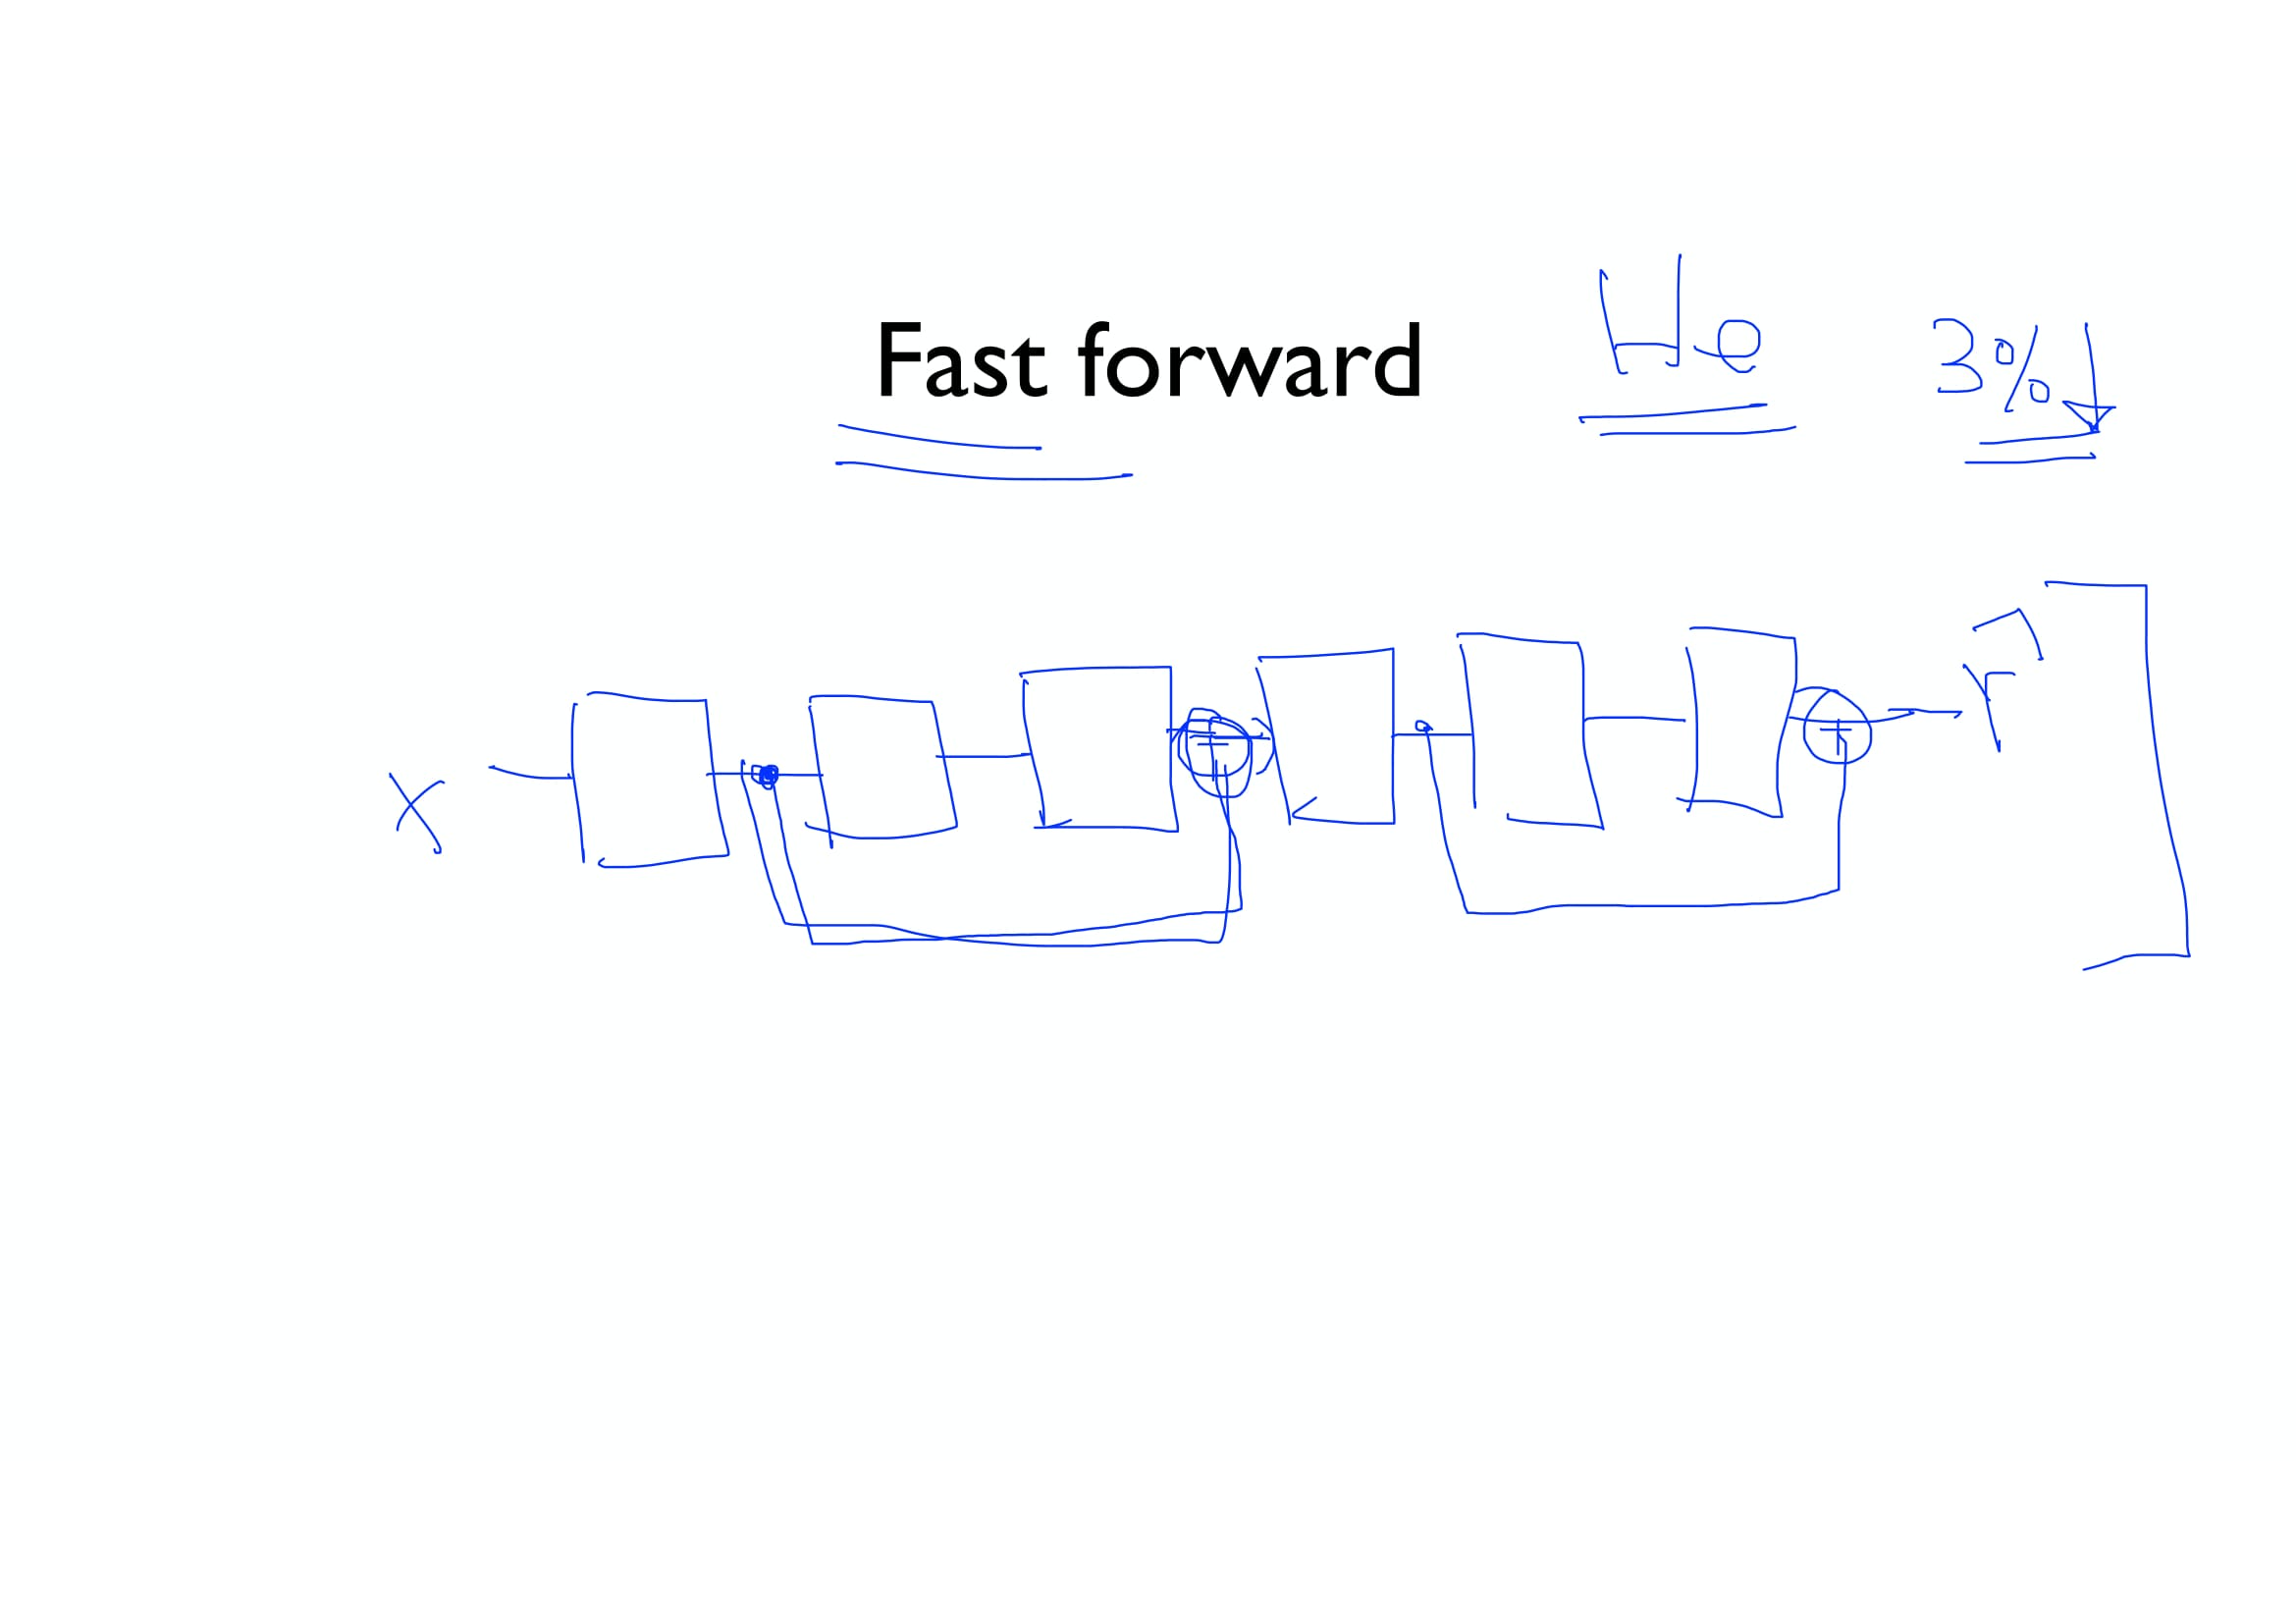 Fast forward
40
3%
X
+
+